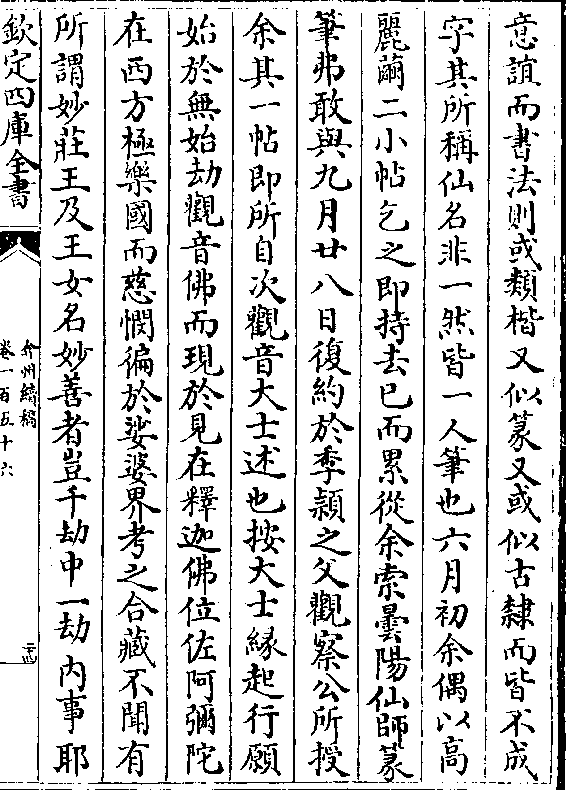 意誼而書法則或類楷又似篆又或似古隸而皆不成
字其所稱仙名非一然皆一人筆也六月初余偶以高
麗繭二小帖乞之即持去已而累從余索曇陽仙師篆
筆弗敢與九月廿八日復約於季穎之父觀察公所授
余其一帖即所自次觀音大士述也按大士緣起行願
始於無始劫觀音佛而現於見在釋迦佛位佐阿彌陀
在西方極樂國而慈憫徧於娑婆界考之合藏不聞有
所謂妙莊王及王女名妙善者豈千劫中一劫內事耶
欽定四庫全書
弇州續稿
卷一百五十六
二十四